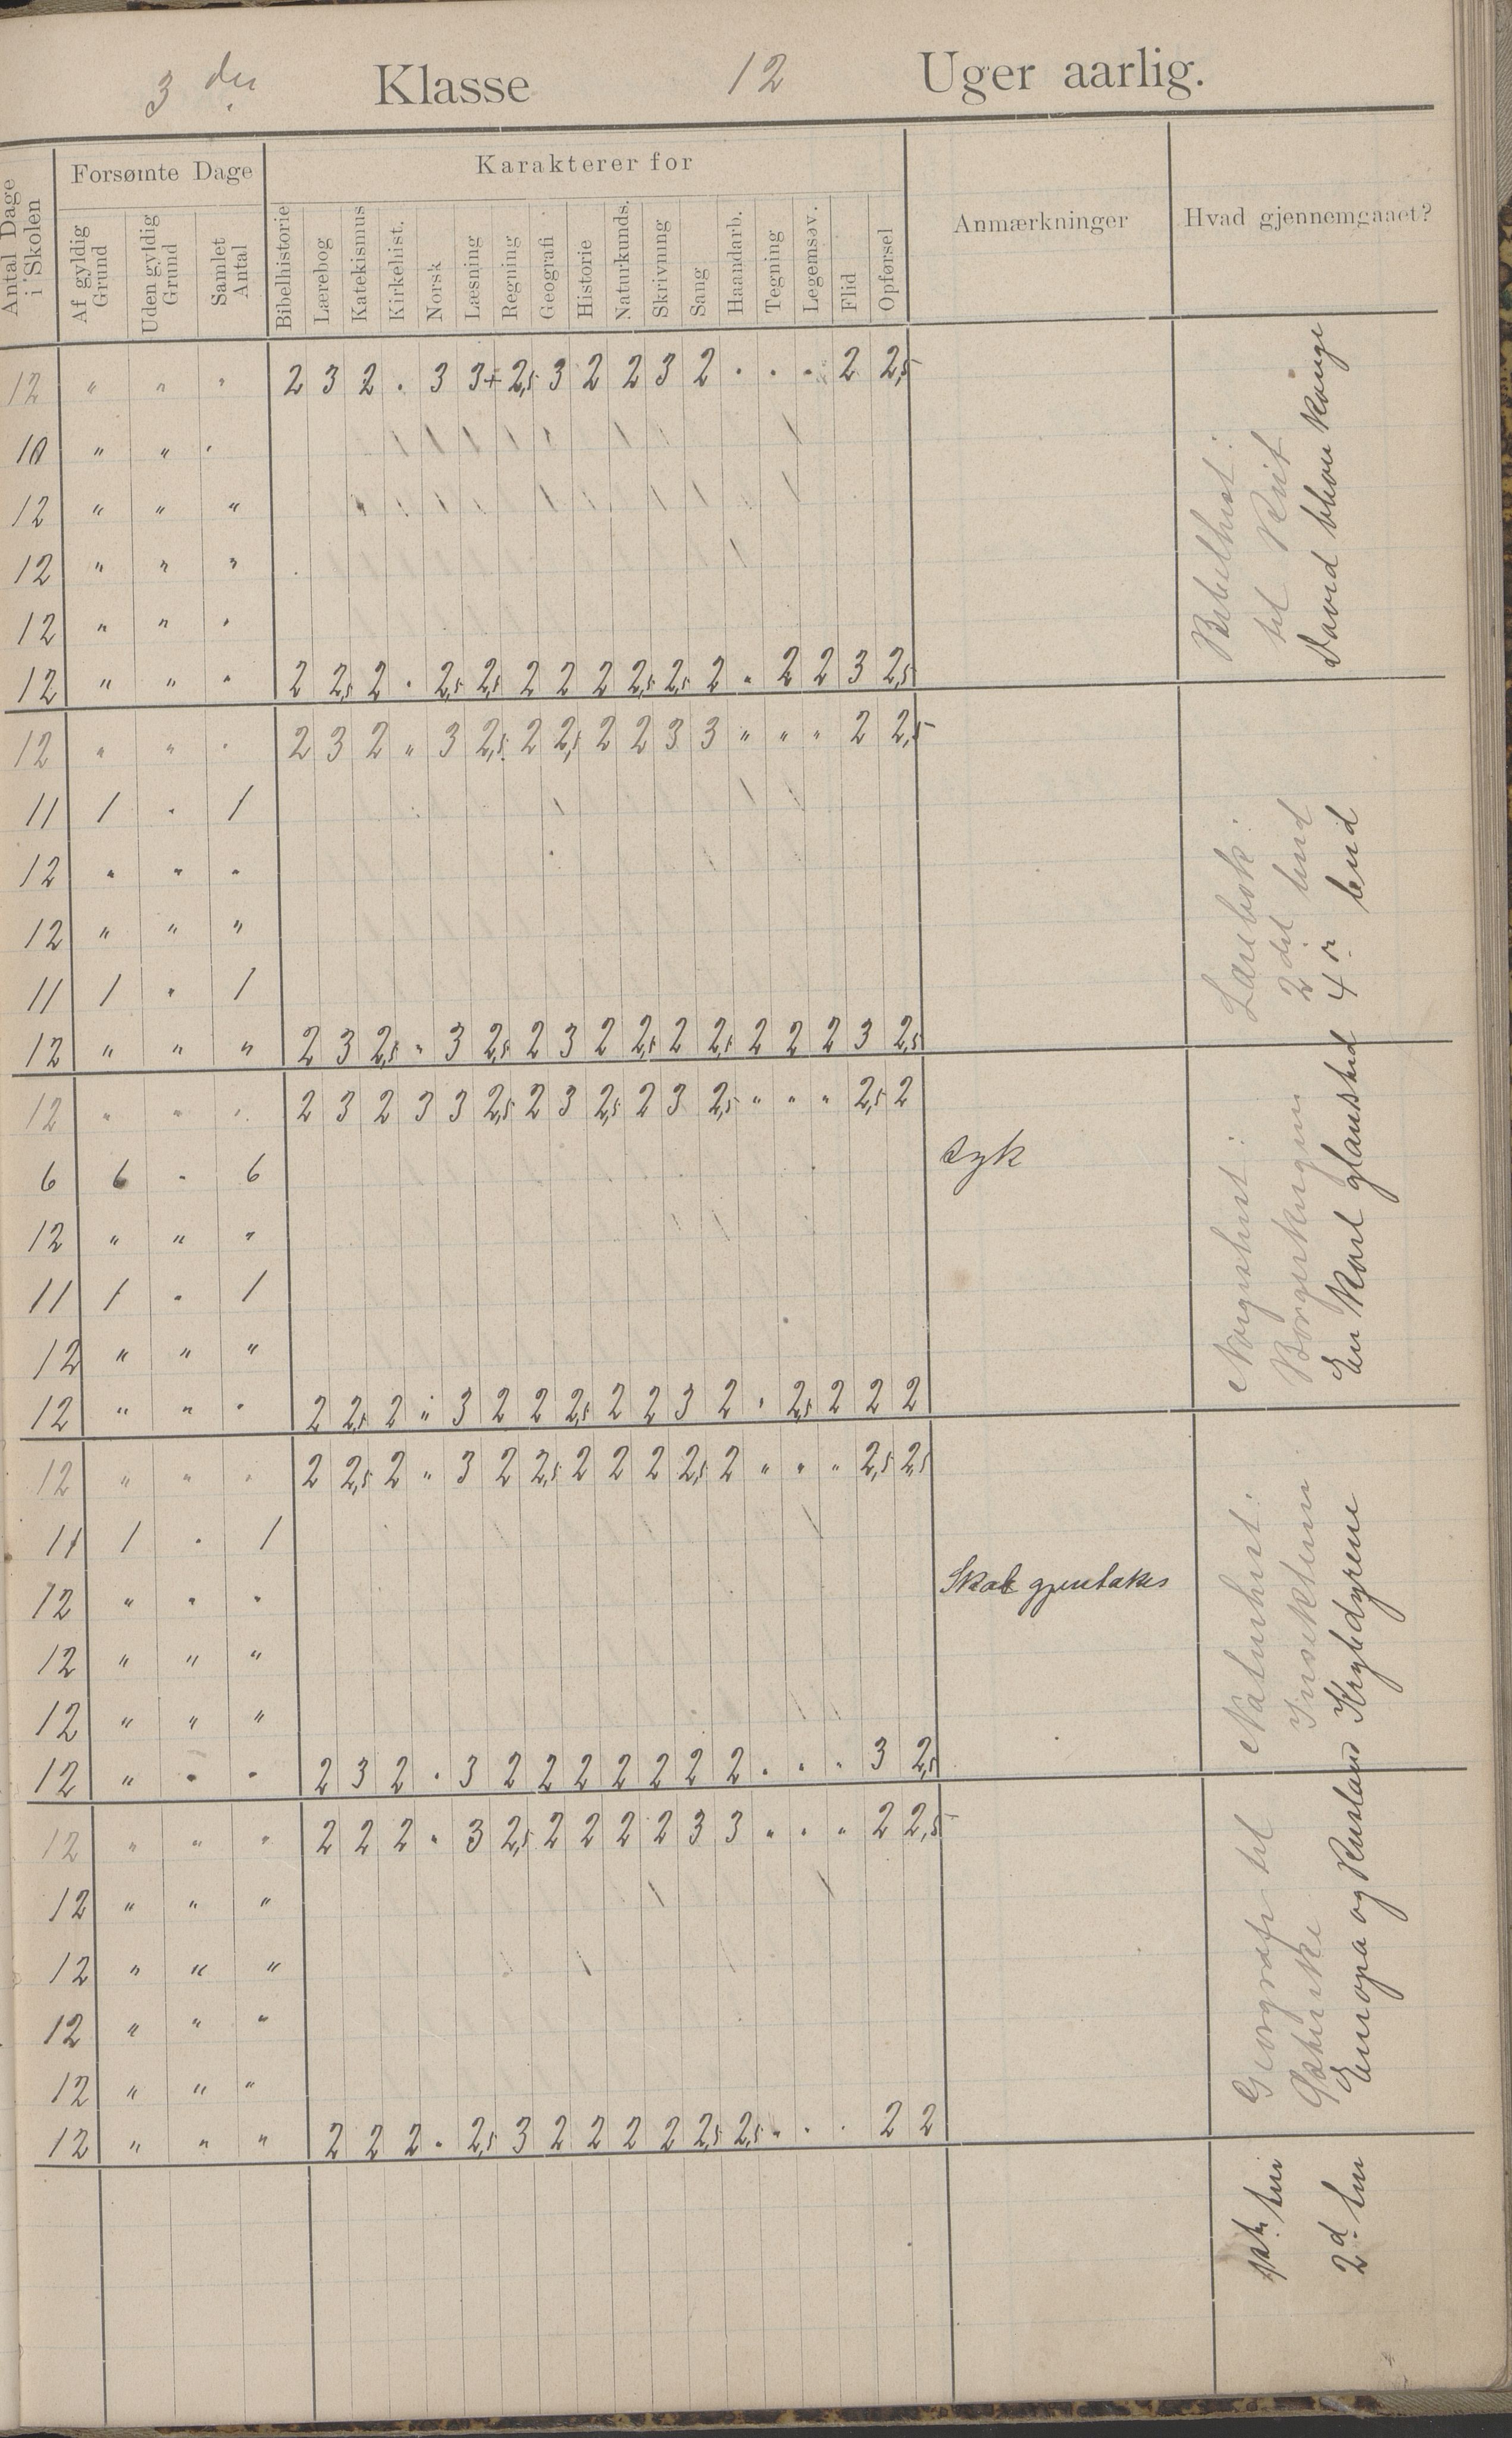 3 die Klasse 12 Uger aarlig.
Antal Dage i Skolen Forsømte Dage Karakterer for Anmærkninger Hvad gjennemgaaet?
Af gyldig Grund Uden gyldig Grund Samlet Antal Bibelhistorie Lærebog Katekismus Kirkehist. Norsk Læsning Regning Geografi Historie Naturkunds. Skrivning Sang Haandarb. Tegning Legemsøv. Flid Opførsel
12 " " " 2 3 2 . 3 3+ 2,5 3 2 2 3 2 . . . 2 2,5
10 " " "
12 " " "
12 " " "
12 " " "
12 " " " 2 2,5 2 . 2,5 2,5 2 2 2 2,5 2,5 2 . 2 2 3 2,5
12 " " " 2 3 2 " 3 2,5 2 2,5 2 2 3 3 " " " 2 2,5
11 1 " 1
12 " " "
12 " " "
11 1 " 1
12 " " " 2 3 2,5 " 3 2,5 2 3 2 2,5 2 2,5 2 2 2 3 2,5
12 " " " 2 3 2 3 3 2,5 2 3 2,5 2 3 2,5 " " " 2,5 2
6 6 " 6 syk
12 " " "
11 1 " 1
12 " " "
12 " " " 2 2,5 2 " 3 2 2 2,5 2 2 3 2 " 2,5 2 2 2
12 " " " 2 2,5 2 " 3 2 2,5 2 2 2 2,5 2 " " " 2,5 2,5
11 1 " 1
12 " " " Skole gjentakes
12 " " "
12 " " "
12 " " " 2 3 2 . 3 2 2 2 2 2 2 2 . . . 3 2,5
12 " " " 2 2 2 " 3 2,5 2 2 2 2 3 3 " " " 2 2,5
12 " " "
12 " " "
12 " " "
12 " " "
12 " " " 2 2 2 . 2,5 3 2 2 2 2 2,5 2,5 . . . 2 2
Bibelhist:
til Rut
David blev konge
Lærebok:
2det
4
Norgeshist:
Borgerkrigen
Naturhist:
Insektene
Krybdyrene
Geografi til
Østerrike
Europa og Rusland
2d